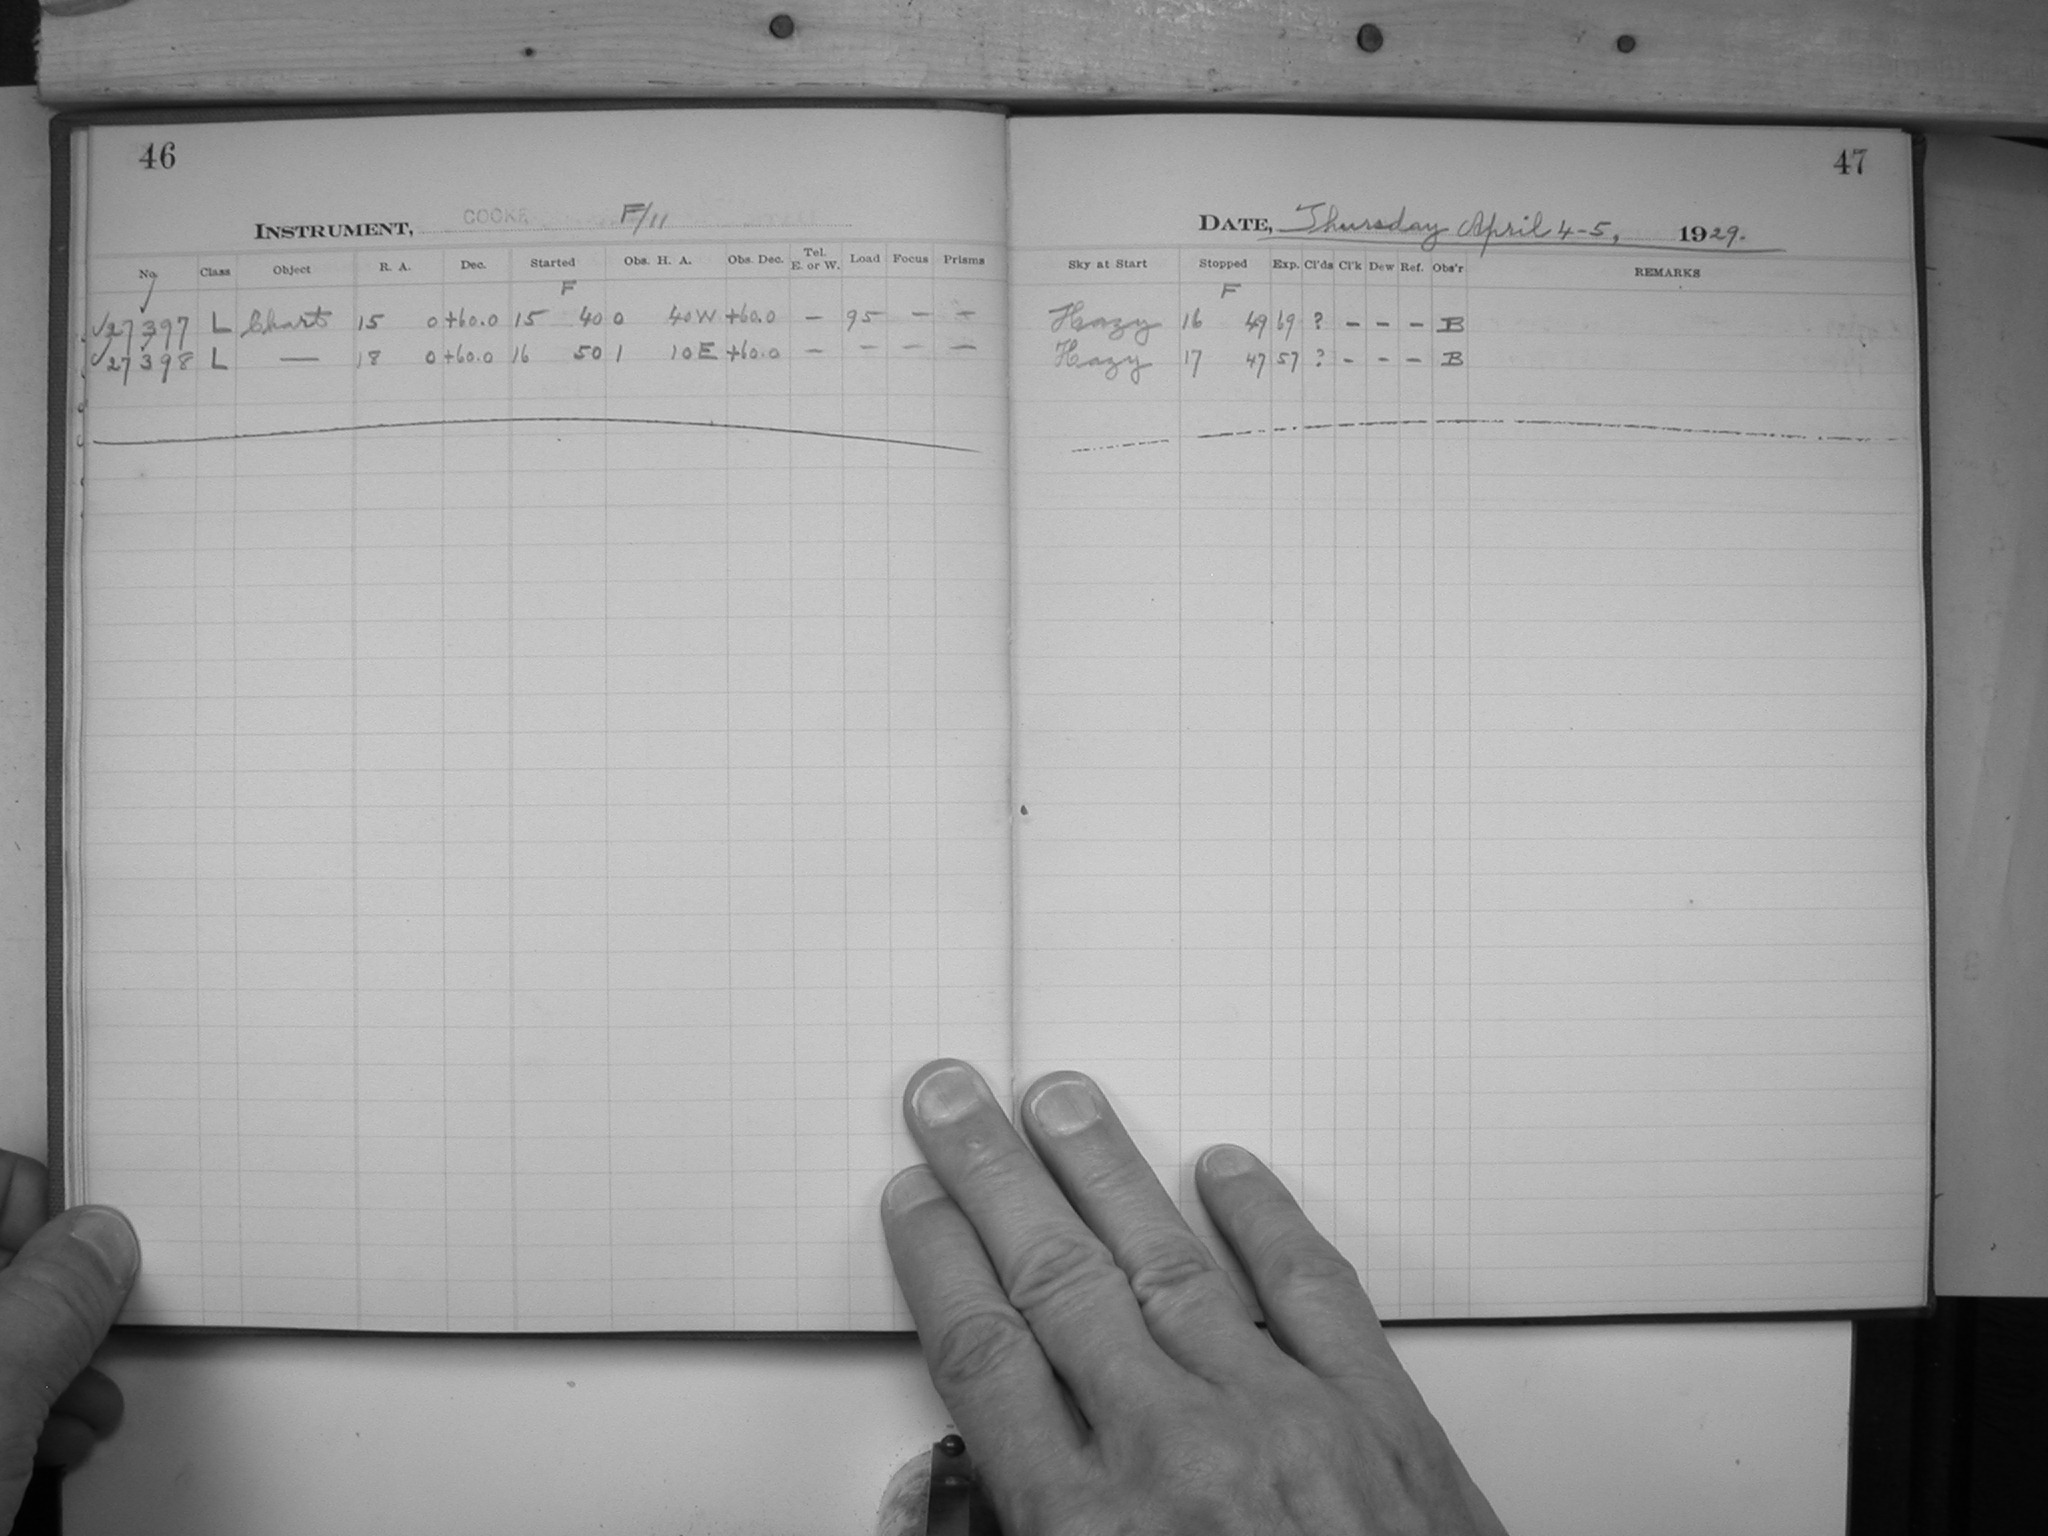 46
INSTRUMENT, COOKE F/11
No. Class Object R. A. Dec. Started Obs. H. A. Obs. Dec. Tel. E. or W. Load Focus Prisms
F
√27397 L Chart 15 0 +60.0 15 40 0 40 W +60.0 — 95 — —
√27398 L — 18 0 +60.0 16 50 1 10 E +60.0 — — — —
47
DATE, Thursday April 4-5, 1929.
Sky at Start Stopped Exp. Cl'ds Cl'k Dew Ref. Obs'r REMARKS
F
Hazy 16 49 69 ? – – – B
Hazy 17 47 57 ? – – – B